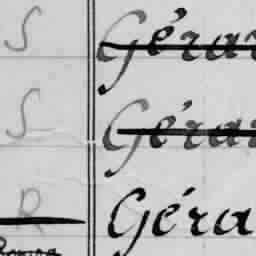 S Géra
S Géra
R Géra